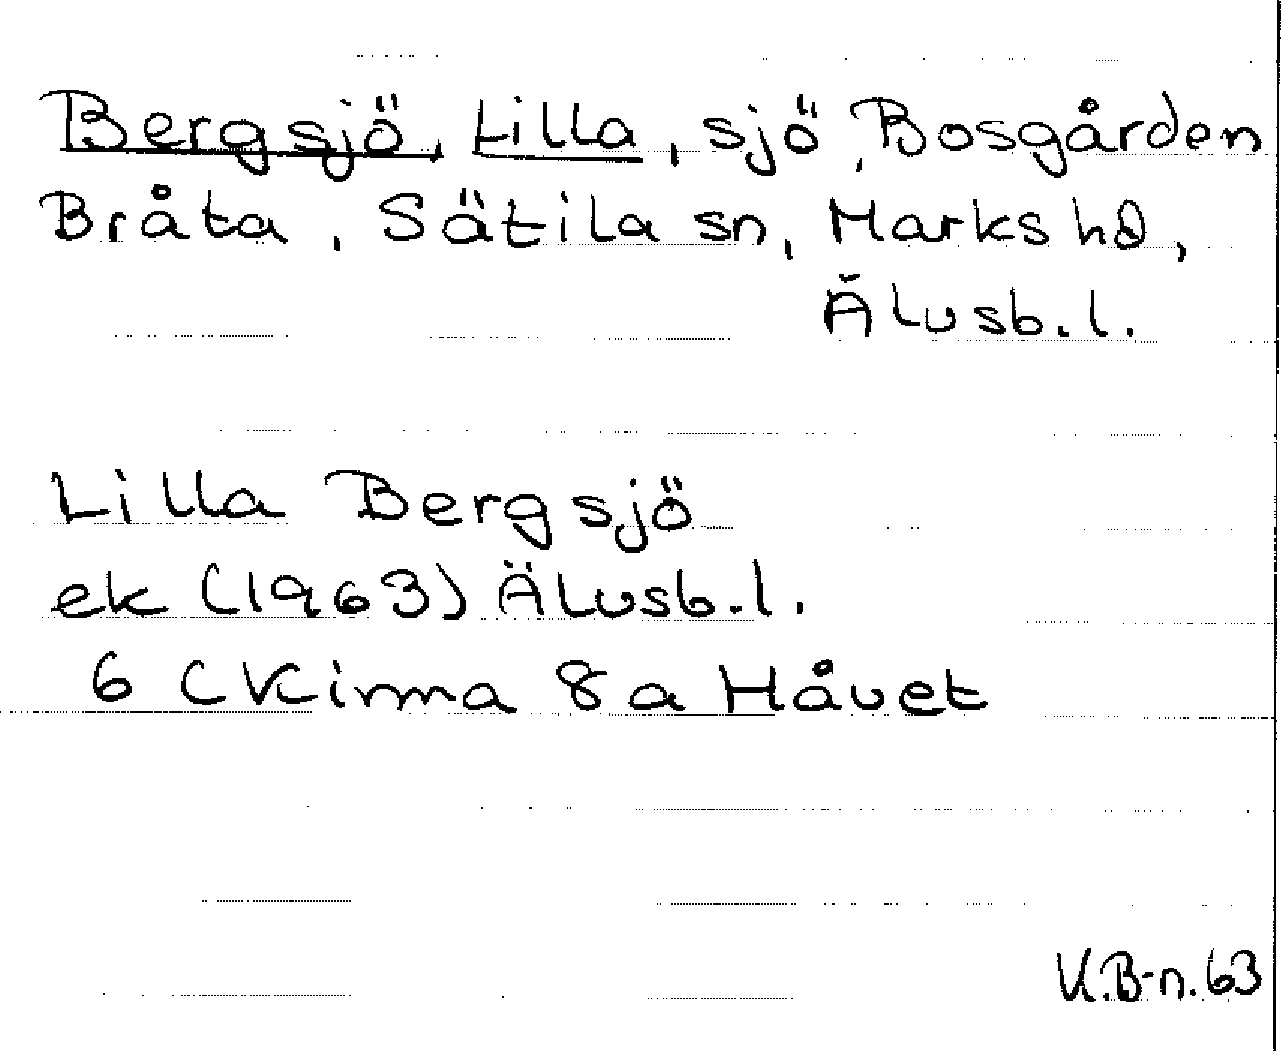 Bergsjö, Lilla, sjö, Bosgården
Bråta, Sätila sn, Marks hd,
Älvsb.l.
Lilla Bergsjö
ek (1963) Älvsb.l.
6 C Kinna 8a Håvet
V.B-n.63